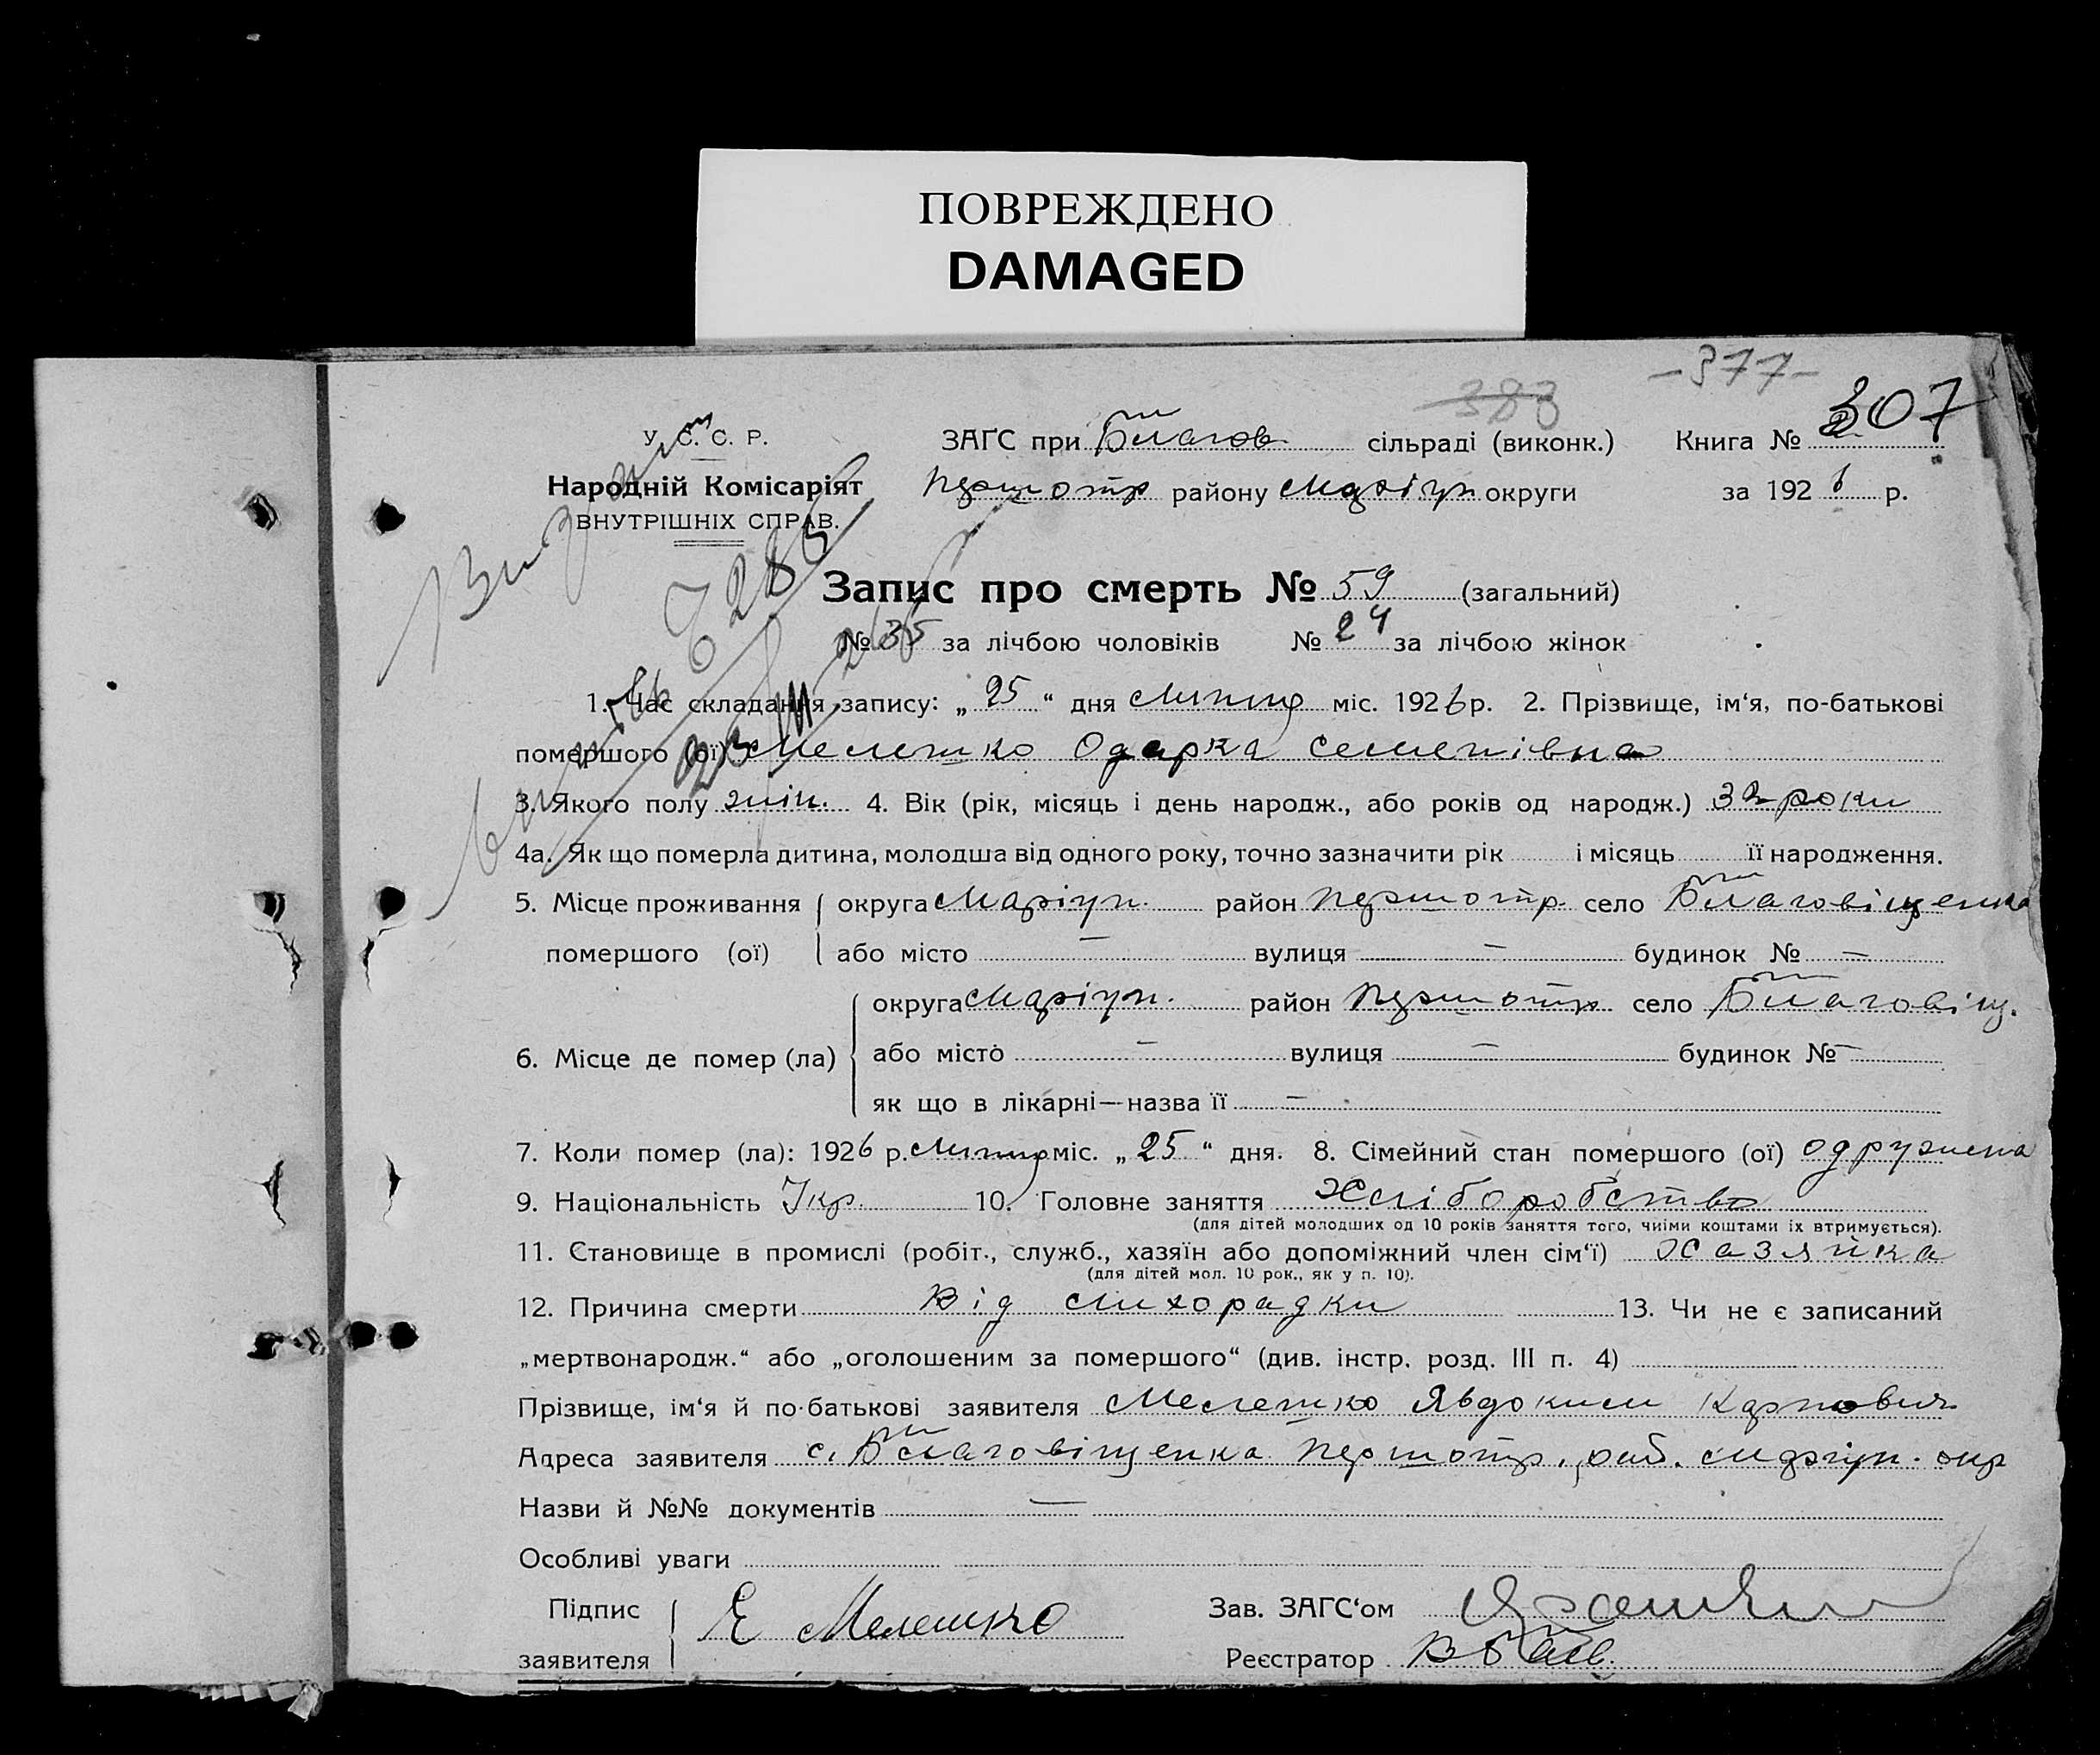 ПОВРЕЖДЕНО
DAMAGED
-377-
383
307
У. С. С. Р.
ЗАГС при Благов. сільраді (виконк.) Книга №
Народній Комісаріят
Першотр району Маріуп. округи за 1926 р.
ВНУТРІШНІХ СПРАВ.
Запис про смерть № 59 (загальний)
№ 35 за лічбою чоловіків № 24 за лічбою жінок
1. Час складання запису: „ 25 “ дня липня міс. 1926 р. 2. Прізвище, ім‘я, по-батькові
помершого (ої) Мелешко Одарка Семенівна
3. Якого полу жін. 4. Вік (рік, місяць і день народж., або років од народж.) 32 роки
4а. Як що померла дитина, молодша від одного року, точно зазначити рік і місяць її народження.
5. Місце проживання округа Маріуп. район Першотр. село Благовіщенка
помершого (ої) або місто — вулиця — будинок № —
округа Маріуп. район Першотр. село Благовіщ.
6. Місце де помер (ла) або місто — вулиця — будинок № —
як що в лікарні—назва її —
7. Коли помер (ла): 1926 р. липня міс. „ 25 “ дня. 8. Сімейний стан помершого (ої) одружена
9. Національність Укр. 10. Головне заняття Хліборобство
(для дітей молодших од 10 років заняття того, чиїми коштами їх втримується).
11. Становище в промислі (робіт., служб., хазяїн або допоміжний член сім‘ї) Хазяйка
(для дітей мол. 10 рок., як у п. 10).
12. Причина смерти Від лихорадки 13. Чи не є записаний
„мертвонародж.“ або „оголошеним за помершого“ (див. інстр. розд. III п. 4)
Прізвище, ім‘я й по-батькові заявителя Мелешко Явдоким Карпович
Адреса заявителя с. Благовіщенка Першотр. рай. Маріуп. окр
Назви й №№ документів —
Особливі уваги
Підпис Е Мелешко Зав. ЗАГС‘ом
заявителя Реєстратор